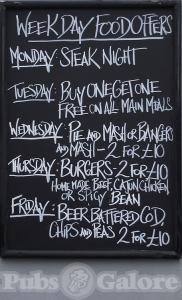 WEEKDAY FOOD OFFERS
MONDAY: STEAK NIGHT
TUESDAY: BUY ONE GET ONE
FREE ON ALL MAIN MEALS
WEDNESDAY: PIE AND MASH OR BANGERS
AND MASH - 2 FOR £10
THURSDAY: BURGERS - 2 FOR £10
HOME MADE BEEF, CAJUN CHICKEN
OR SPICY BEAN
FRIDAY: BEER BATTERED COD,
CHIPS AND PEAS 2 FOR £10
Pubs Galore